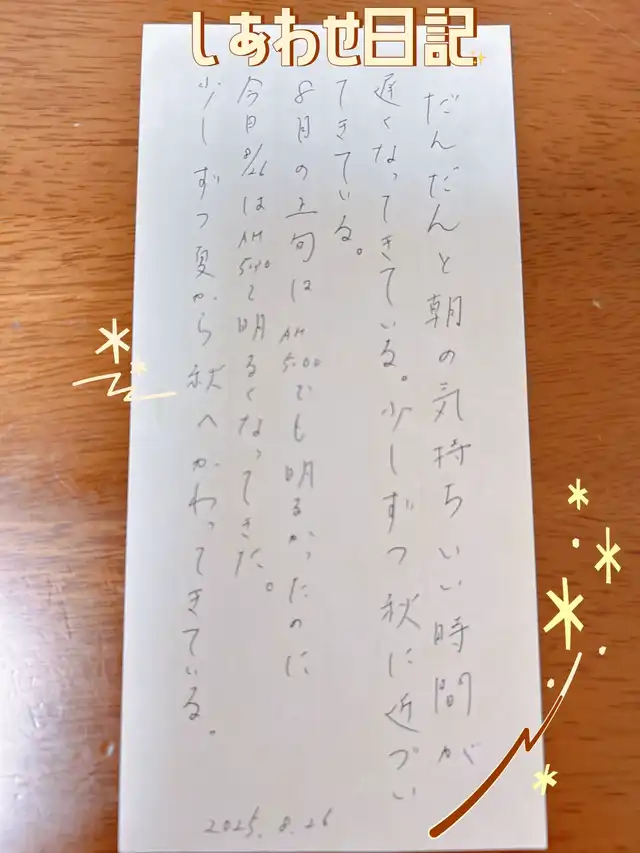 しあわせ日記
だんだんと朝の気持ちいい時間が
遅くなってきている。少しずつ秋に近づい
てきている。
8月の上旬は AM 5:00でも明るかったのに
今日8/26は AM 5:40で明るくなってきた。
少しずつ夏から秋へかわってきている。
2025.8.26